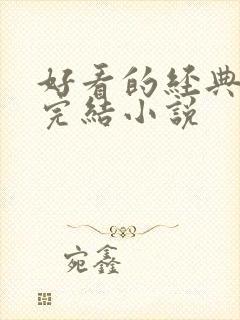 好看的經典
完結小說
宛鑫